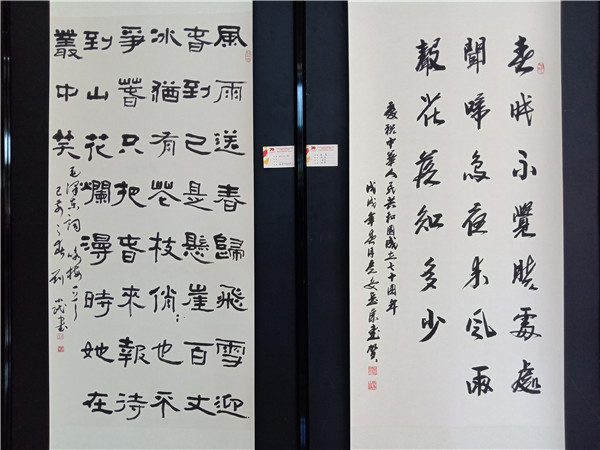 春眠不覺曉處處
聞啼鳥夜來風雨
聲花落知多少
慶祝中华人民共和國成立七十周年
戊戌年
風雨送春歸飛雪迎
春到已是懸崖百丈
冰猶有花枝俏也不
爭春只把春來報待
到山花爛漫時她在
叢中笑
毛澤東詞咏梅
己亥之春